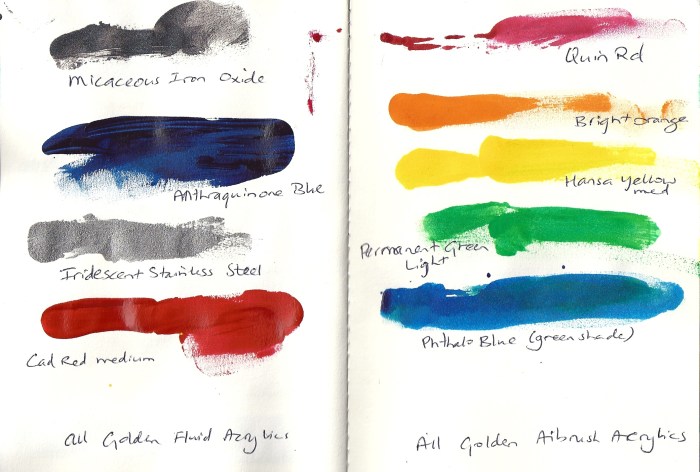 Micaceous Iron Oxide
Anthraquinone Blue
Iridescent Stainless Steel
Cad Red medium
all Golden Fluid Acrylics
Quin Rd
Bright orange
Hansa Yellow
med
Permanent Green
Light
Phthalo Blue (green shade)
All Golden Aibrush Acrylics